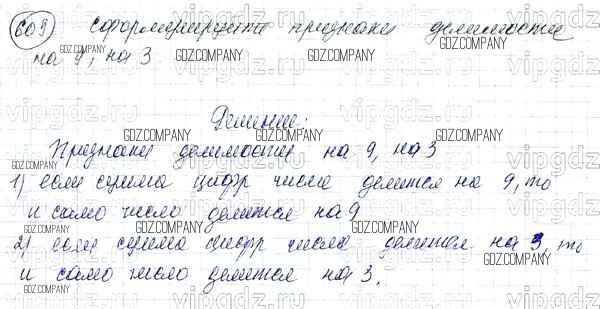 609 Сформулируйте признаки делимости
на 9, на 3
Решение:
Признаки делимости на 9, на 3
1) если сумма цифр числа делится на 9, то
и само число делится на 9
2) если сумма цифр числа делится на 3, то
и само число делится на 3.